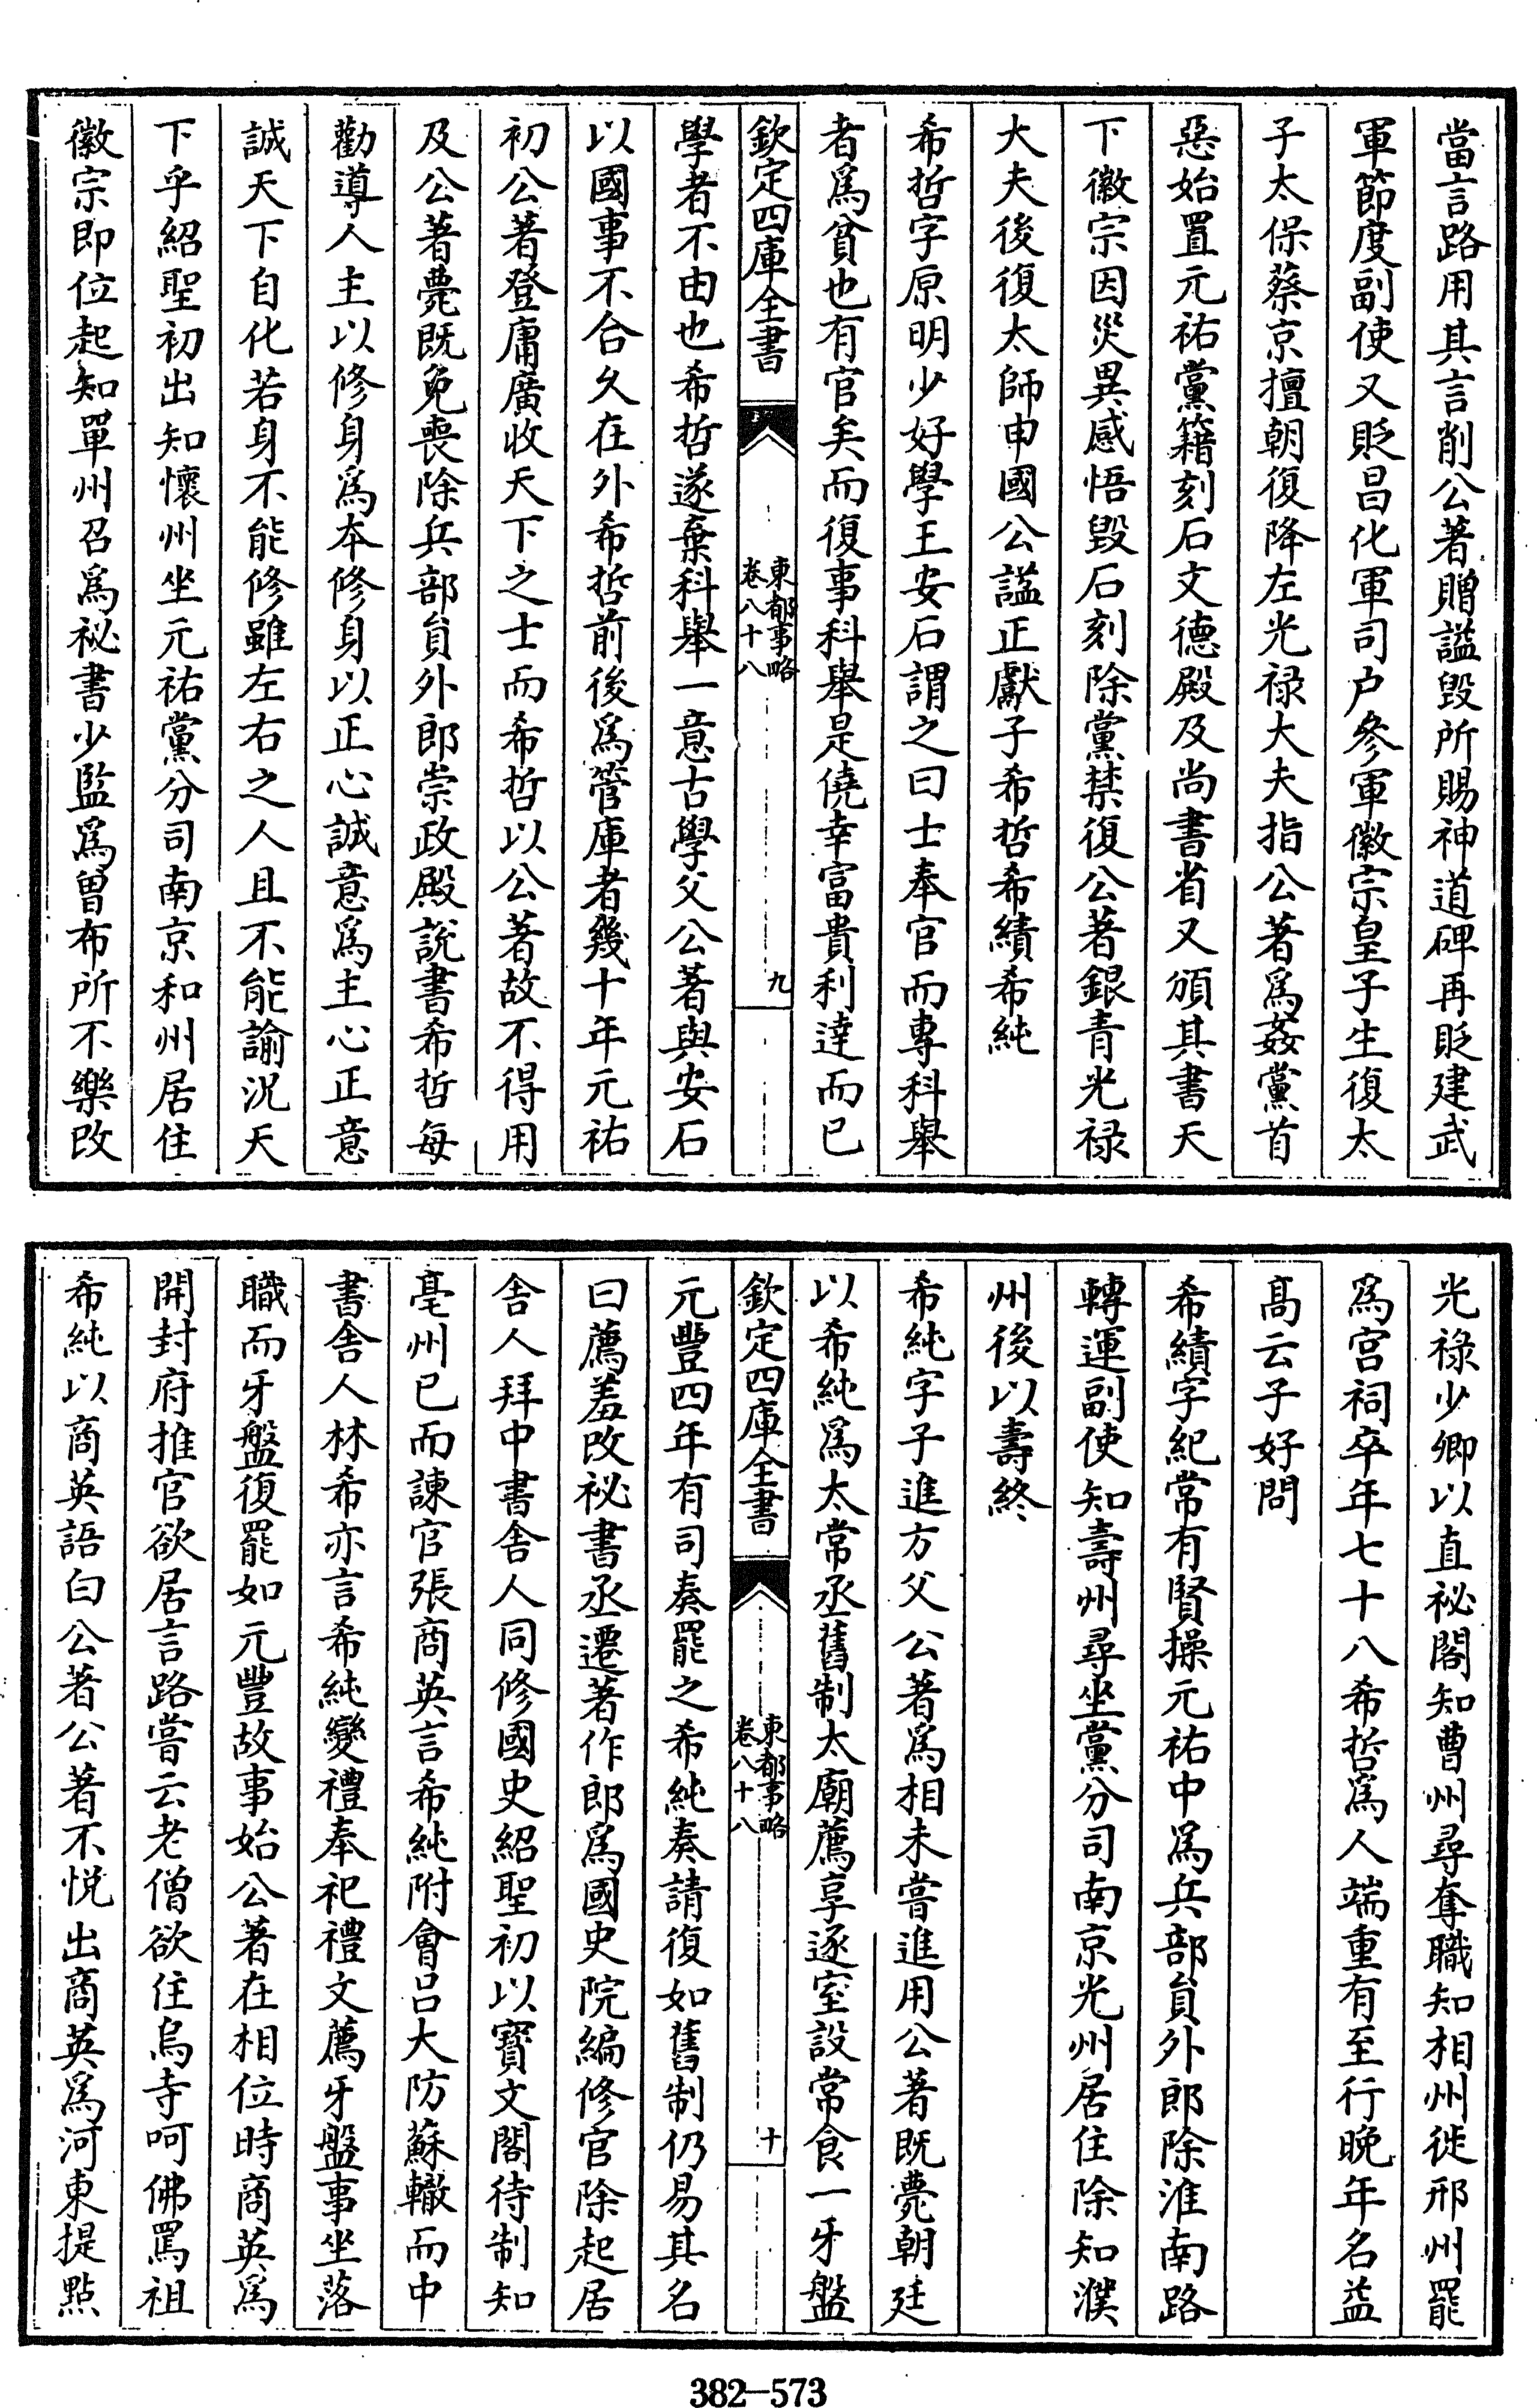 當言路用其言削公著贈謚毀所賜神道碑再貶建武
軍節度副使又貶昌化軍司户參軍徽宗皇子生復太
子太保蔡京擅朝復降左光禄大夫指公著爲姦黨首
惡始置元祐黨籍刻石文德殿及尚書省又頒其書天
下徽宗因災異感悟毀石刻除黨禁復公著銀青光禄
大夫後復太師申國公謚正獻子希哲希績希純
希哲字原明少好學王安石謂之曰士奉官而專科舉
者爲貧也有官矣而復事科舉是僥幸富貴利達而已
欽定四庫全書
東都事略
卷八十八
九
學者不由也希哲遂棄科舉一意古學父公著與安石
以國事不合久在外希哲前後爲管庫者幾十年元祐
初公著登庸廣收天下之士而希哲以公著故不得用
及公著薨既免喪除兵部員外郎崇政殿説書希哲每
勸導人主以修身爲本修身以正心誠意爲主心正意
誠天下自化若身不能修雖左右之人且不能諭況天
下乎紹聖初出知懷州坐元祐黨分司南京和州居住
徽宗即位起知單州召爲祕書少監爲曾布所不樂改
光禄少卿以直祕閣知曹州尋奪職知相州徙邢州罷
爲宫祠卒年七十八希哲爲人端重有至行晚年名益
髙云子好問
希績字紀常有賢操元祐中爲兵部員外郎除淮南路
轉運副使知壽州尋坐黨分司南京光州居住除知濮
州後以壽終
希純字子進方父公著爲相未嘗進用公著既薨朝廷
以希純爲太常丞舊制太廟薦享逐室設常食一牙盤
欽定四庫全書
東都事略
卷八十八
十
元豐四年有司奏罷之希純奏請復如舊制仍易其名
曰薦羞改祕書丞遷著作郎爲國史院編修官除起居
舍人拜中書舍人同修國史紹聖初以寳文閣待制知
亳州已而諫官張商英言希純附會吕大防蘇轍而中
書舍人林希亦言希純變禮奉祀禮文薦牙盤事坐落
職而牙盤復罷如元豐故事始公著在相位時商英爲
開封府推官欲居言路嘗云老僧欲住烏寺呵佛罵祖
希純以商英語白公著公著不悦出商英爲河東提點
382—573